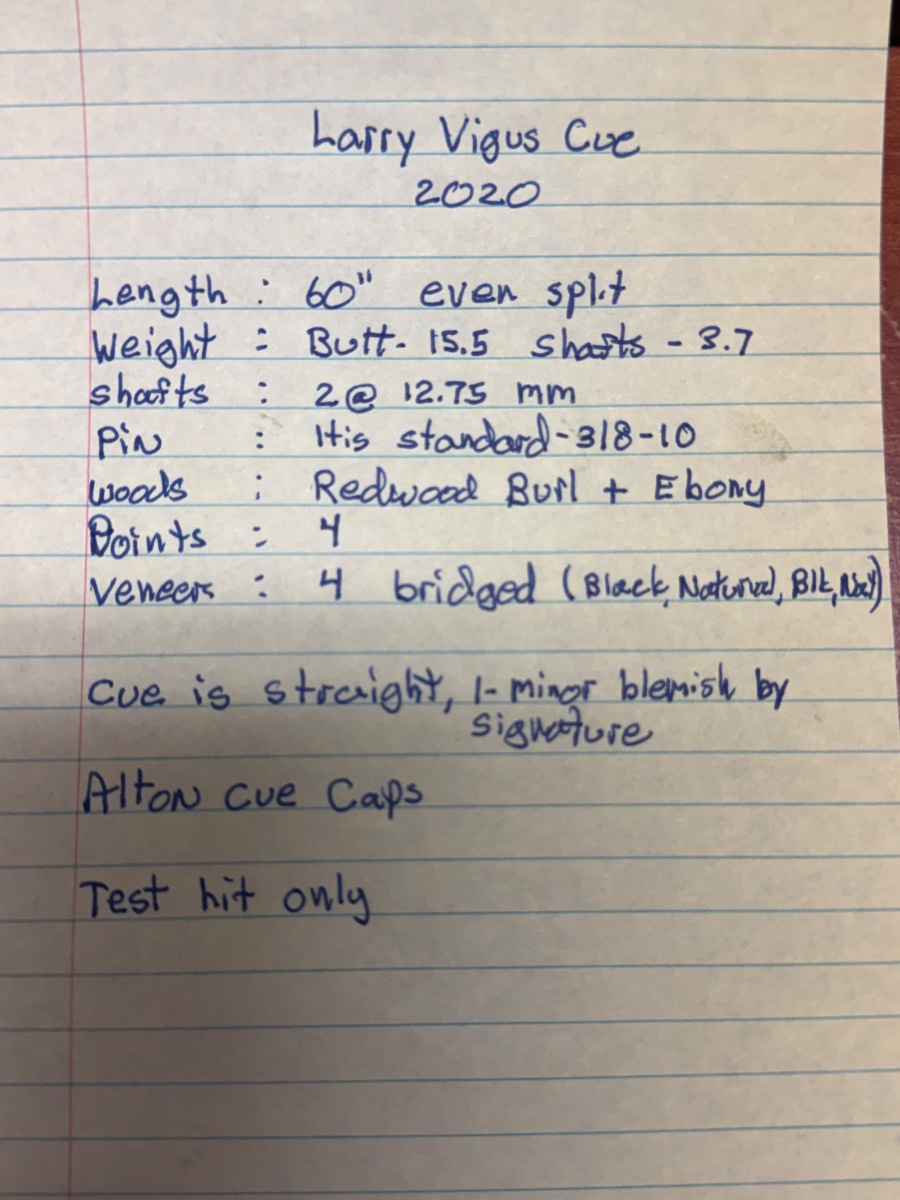 Larry Vigus Cue
2020
Length : 60" even split
Weight : Butt- 15.5 shafts - 3.7
shafts : 2@ 12.75 mm
Pin : His standard-318-10
woods : Redwood Burl + Ebony
Points : 4
Veneers : 4 bridged (Black, Natural, Blk, Nat)
Cue is straight, 1- minor blemish by
signature
Alton Cue Caps
Test hit only